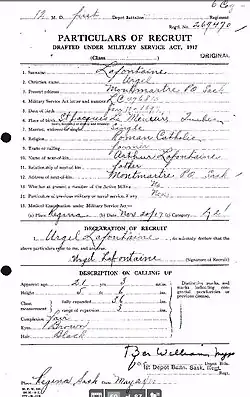 12 M.D. first Depot Battalion Regt.
Regtl. No. 269470
PARTICULARS OF RECRUIT
DRAFTED UNDER MILITARY SERVICE ACT, 1917
(Class )
ORIGINAL
1. Surname Lafontaine
2. Christian name Urgel
3. Present address Montmartre P.O. Sask
4. Military Service Act letter and number
5. Date of birth
6. Place of birth St Jacques Le Mineurs Quebec
7. Married, widower or single Single
8. Religion Roman Catholic
9. Trade or calling Farmer
10. Name of next-of-kin Arthur Lafontaine
11. Relationship of next-of-kin Father
12. Address of next-of-kin Montmartre P.O. Sask
13. Whether at present a member of the Active Militia No
14. Particulars of previous military or naval service, if any
15. Medical Examination under Military Service Act:—
(a) Place Regina (b) Date Nov 20/17 (c) Category A2
DECLARATION OF RECRUIT
I, Urgel Lafontaine, do solemnly declare that the above particulars refer to me, and are true.
Urgel Lafontaine (Signature of Recruit)
DESCRIPTION ON CALLING UP
Apparent age 21 yrs. 3 mths.
Height 5 ft. ins.
Chest measurement fully expanded 36 ins.
range of expansion 3 ins.
Complexion Fair
Eyes Brown
Hair Black
Distinctive marks, and marks indicating congenital peculiarities or previous disease.
1st Depot Battn. Sask. Regt.
Place Regina Sask Date May